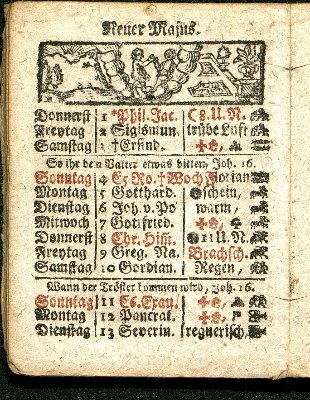 Neuer Majus.
Donnerst 1 *Phil. Jac. C 8. U. N.
Freytag 2 Sigismun. trübe Luft
Samstag 3 † Erfind.
So ihr den Vatter etwas bitten, Joh. 16.
Sonntag 4 C5 Ro. † Woch Florian
Montag 5 Gotthard. schein,
Dienstag 6 Joh. v. Po warm,
Mitwoch 7 Gottfried.
Donnerst 8 Chr. Him. 11 U. N.
Freytag 9 Greg. Na. Brachsch.
Samstag 10 Gordian. Regen,
Wann der Tröster kommen wird, Joh. 16.
Sonntag 11 C6. Exau.
Montag 12 Pancrat.
Dienstag 13 Severin. regnerisch,